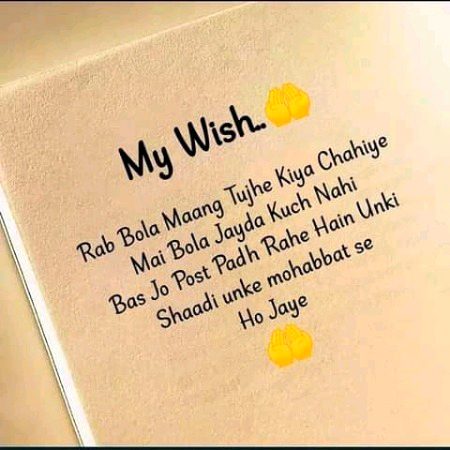 My Wish..🤲
Rab Bola Maang Tujhe Kiya Chahiye
Mai Bola Jayda Kuch Nahi
Bas Jo Post Padh Rahe Hain Unki
Shaadi unke mohabbat se
Ho Jaye
🤲